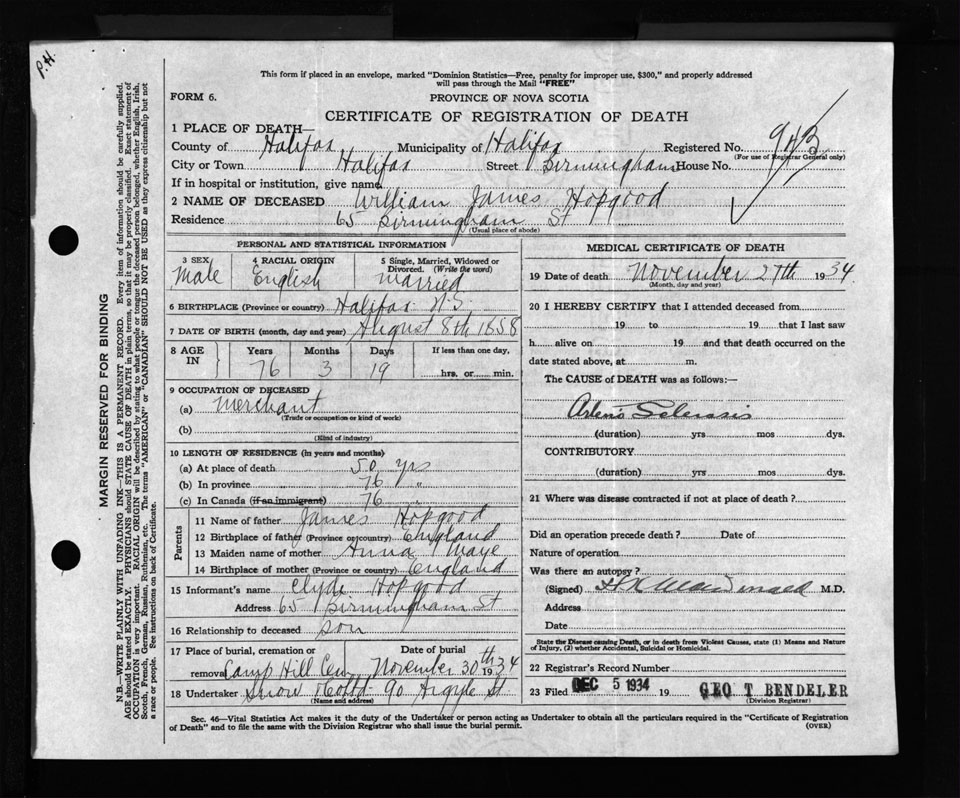 P.H.
This form if placed in an envelope, marked "Dominion Statistics—Free, penalty for improper use, $300," and properly addressed
will pass through the Mail "FREE"
FORM 6.
PROVINCE OF NOVA SCOTIA
CERTIFICATE OF REGISTRATION OF DEATH
1 PLACE OF DEATH—
County of Halifax Municipality of Halifax Registered No. 943
(For use of Registrar General only)
City or Town Halifax Street Birmingham House No.
If in hospital or institution, give name
2 NAME OF DECEASED William James Hopgood
Residence 65 Birmingham St
(Usual place of abode)
PERSONAL AND STATISTICAL INFORMATION
3 SEX 4 RACIAL ORIGIN 5 Single, Married, Widowed or
Divorced. (Write the word)
Male English Married
6 BIRTHPLACE (Province or country) Halifax N.S.
7 DATE OF BIRTH (month, day and year) August 8th 1858
8 AGE IN Years Months Days If less than one day,
76 3 19 hrs. or min.
9 OCCUPATION OF DECEASED
(a) Merchant
(Trade or occupation or kind of work)
(b)
(Kind of industry)
10 LENGTH OF RESIDENCE (in years and months)
(a) At place of death 50 yrs
(b) In province 76 "
(c) In Canada (if an immigrant) 76 "
Parents
11 Name of father James Hopgood
12 Birthplace of father (Province or country) England
13 Maiden name of mother Anna Maye
14 Birthplace of mother (Province or country) England
15 Informant's name Clyde Hopgood
Address 65 Birmingham St
16 Relationship to deceased son
17 Place of burial, cremation or Date of burial
removal Camp Hill Cem November 30th 1934
18 Undertaker Snow & Co Ltd 90 Argyle St
(Name and address)
MEDICAL CERTIFICATE OF DEATH
19 Date of death November 27th 1934
(Month, day and year)
20 I HEREBY CERTIFY that I attended deceased from
19 to 19 that I last saw
h alive on 19 and that death occurred on the
date stated above, at m.
The CAUSE of DEATH was as follows:—
Arterio Sclerosis
(duration) yrs mos dys.
CONTRIBUTORY
(duration) yrs mos dys.
21 Where was disease contracted if not at place of death?
Did an operation precede death? Date of
Nature of operation
Was there an autopsy?
(Signed) MacDonald M.D.
Address
Date
State the Disease causing Death, or in death from Violent Causes, state (1) Means and Nature
of Injury, (2) whether Accidental, Suicidal or Homicidal.
22 Registrar's Record Number
23 Filed DEC 5 1934 19 GEO T BENDELER
(Division Registrar)
Sec. 46—Vital Statistics Act makes it the duty of the Undertaker or person acting as Undertaker to obtain all the particulars required in the "Certificate of Registration
of Death" and to file the same with the Division Registrar who shall issue the burial permit.
(OVER)
MARGIN RESERVED FOR BINDING
N.B.—WRITE PLAINLY WITH UNFADING INK—THIS IS A PERMANENT RECORD. Every item of information should be carefully supplied.
AGE should be stated EXACTLY. PHYSICIANS should STATE CAUSE OF DEATH in plain terms, so that it may be properly classified. Exact statement of
OCCUPATION is very important. RACIAL ORIGIN will be described by stating to what people or tongue the deceased person belonged, whether English, Irish,
Scotch, French, German, Russian, Ruthenian, etc. The terms "AMERICAN" or "CANADIAN" SHOULD NOT BE USED as they express citizenship but not
a race or people. See instructions on back of Certificate.